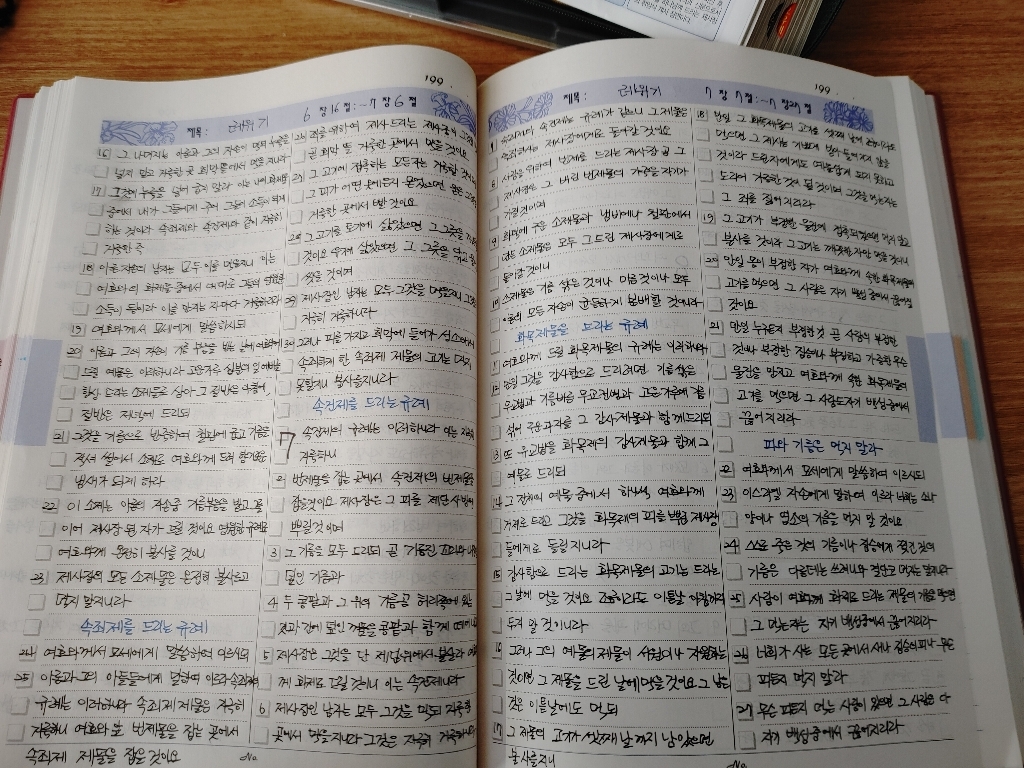 199
제목: 레위기 6장 16절 :~ 7장 6절
16 그 나머지는 아론과 그의 자손이 먹되 누룩을
넣지 말고 거룩한 곳 회막 뜰에서 먹을지니라
17 그것에 누룩을 넣어 굽지 말라 이는 나의 화제물
중에서 내가 그들에게 주어 그들의 소득이 되게
하는 것이라 속죄제와 속건제와 같이 지극히
거룩한 즉
18 아론 자손의 남자는 모두 이를 먹을지니 이는
여호와의 화제물 중에서 대대로 그들의 영원한
소득이 됨이라 이를 만지는 자마다 거룩하리라
19 여호와께서 모세에게 말씀하시되
20 아론과 그의 자손이 기름 부음을 받는 날에 여호와께
드릴 예물은 이러하니라 고운 가루 십분의 일 에바를
항상 드리는 소제물로 삼아 그 절반은 아침에,
절반은 저녁에 드리되
21 그것을 기름으로 반죽하여 철판에 굽고 기름에
적셔 썰어서 소제로 여호와께 드려 향기로운
냄새가 되게 하라
22 이 소제는 아론의 자손 중 기름 부음을 받고 그를
이어 제사장 된 자가 드릴 것이요 영원한 규례로
여호와께 온전히 불사를 것이니
23 제사장의 모든 소제물은 온전히 불사르고
먹지 말지니라
속죄제를 드리는 규례
24 여호와께서 모세에게 말씀하여 이르시되
25 아론과 그의 아들들에게 말하여 이르라 속죄제의
규례는 이러하니라 속죄제 제물은 지극히
거룩하니 여호와 앞 번제물을 잡는 곳에서
속죄제 제물을 잡을 것이요
26 죄를 위하여 제사 드리는 제사장이 그것을
곧 회막 뜰 거룩한 곳에서 먹을 것이요
27 그 고기에 접촉하는 모든 자는 거룩할 것이며
그 피가 어떤 옷에든지 묻었으면 묻은 그것을
거룩한 곳에서 빨 것이요
28 그 고기를 토기에 삶았으면 그 그릇을 깨뜨릴
것이요 유기에 삶았으면 그 그릇을 닦고 물에
씻을 것이며
29 제사장인 남자는 모두 그것을 먹을지니 그것은
지극히 거룩하니라
30 그러나 피를 가지고 회막에 들어가 성소에서
속죄하게 한 속죄제 제물의 고기는 먹지
못할지니 불사를지니라
속건제를 드리는 규례
7 속건제의 규례는 이러하니라 이는 지극히
거룩하니
2 번제물을 잡는 곳에서 속건제의 번제물을
잡을 것이요 제사장은 그 피를 제단 사방에
뿌릴 것이며
3 그 기름을 모두 드리되 곧 기름진 꼬리와 내장에
덮인 기름과
4 두 콩팥과 그 위의 기름 곧 허리쪽에 있는
것과 간에 덮인 꺼풀을 콩팥과 함께 떼어내고
5 제사장은 그것을 단 제단 위에서 불살라 여호와
께 화제로 드릴 것이니 이는 속건제니라
6 제사장인 남자는 모두 그것을 먹되 거룩한
곳에서 먹을지니라 그것은 지극히 거룩하니라
No
199
제목: 레위기 7장 7절 :~ 7장 27절
속죄제와 속건제는 규례가 같으니 그 제물은
속죄하는 제사장에게로 돌아갈 것이요
8 사람을 위하여 번제를 드리는 제사장 곧 그
제사장은 그 바친 번제물의 가죽을 자기가
가질 것이며
9 화덕에 구운 소제물과 냄비에나 철판에서
만든 소제물은 모두 그 드린 제사장에게로
돌아갈 것이니
10 소제물은 기름 섞은 것이나 마른 것이나 모두
아론의 모든 자손이 균등하게 분배할 것이니라
화목제물을 드리는 규례
여호와께 드릴 화목제물의 규례는 이러하니라
12 만일 그것을 감사함으로 드리려면 기름 섞은
무교병과 기름 바른 무교전병과 고운 가루에 기름
섞어 구운 과자를 그 감사제물과 함께 드리고
13 또 유교병을 화목제의 감사제물과 함께 그
예물로 드리되
14 그 전체의 예물 중에서 하나씩 여호와께
거제로 드리고 그것을 화목제의 피를 뿌린 제사장
들에게로 돌릴지니라
15 감사함으로 드리는 화목제물의 고기는 드리는
그 날에 먹을 것이요 조금이라도 이튿날 아침까지
두지 말 것이니라
16 그러나 그의 예물의 제물이 서원이나 자원하는
것이면 그 제물을 드린 날에 먹을 것이요 그 남은
것은 이튿날에도 먹되
17 그 제물의 고기가 셋째 날까지 남았으면
불사를지니
18 만일 그 화목제물의 고기를 셋째 날에 조금이라도
먹으면 그 제사는 기쁘게 받아들여지지 않을
것이라 드린 자에게도 예물답게 되지 못하고
도리어 가증한 것이 될 것이며 그것을 먹는 자는
그 죄를 짊어지리라
19 그 고기가 부정한 물건에 접촉되었으면 먹지 말고
불사를 것이라 그 고기는 깨끗한 자만 먹을 것이니
20 만일 몸이 부정한 자가 여호와께 속한 화목제물의
고기를 먹으면 그 사람은 자기 백성 중에서 끊어질
것이요
21 만일 누구든지 부정한 것 곧 사람의 부정한
것이나 부정한 짐승이나 부정하고 가증한 무슨
물건을 만지고 여호와께 속한 화목제물의
고기를 먹으면 그 사람도 자기 백성 중에서
끊어지리라
피와 기름은 먹지 말라
22 여호와께서 모세에게 말씀하여 이르시되
23 이스라엘 자손에게 말하여 이르라 너희는 소나
양이나 염소의 기름을 먹지 말 것이요
24 스스로 죽은 것의 기름이나 짐승에게 찢긴 것의
기름은 다른 데는 쓰려니와 결단코 먹지는 말지니라
25 사람이 여호와께 화제로 드리는 제물의 기름을 먹으면
그 먹는 자는 자기 백성 중에서 끊어지리라
26 너희가 사는 모든 곳에서 새나 짐승의 피나 무슨
피든지 먹지 말라
27 무슨 피든지 먹는 사람이 있으면 그 사람은 다
자기 백성 중에서 끊어지리라
No